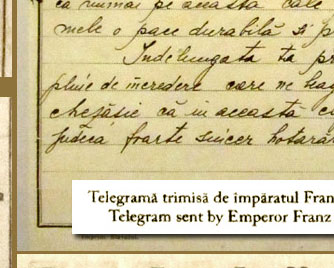 ca numai pe această cale
mele o pace durabilă și p
Îndelungata ta pr
plină de încredere care ne leag
chezășie că in această c
judeca foarte sincer hotarâ
Telegramă trimisă de împăratul Fran
Telegram sent by Emperor Franz